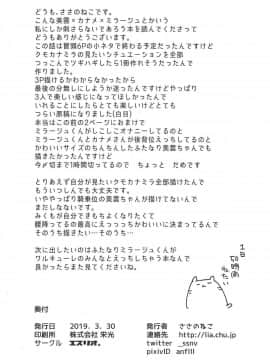 どうも、ささのねこです。
こんな美雲×カナメ×ミラージュとかいう
私にしか刺さらないであろう本を読んでくださって
どうもありがとうございます。
この話は冒頭6Pの小ネタで終わる予定だったんですけど
クモカナミラの見たいシチュエーションを全部
つっこんでツギハギしたら1冊作れそうだったんで
作りました。
3P描けるかわからなかったから
最後の分無しにしようか迷ったんですけどやっぱり
3人で楽しい感じになってほしかったんで
いれることにしたらとても楽しいけどとても
つらい原稿になりました(白目)
本当はこの前の2ページにおまけで
ミラージュくんがしこしこオナニーしてるのと
ミラージュくんとカナメさんが後背位えっちしてるのと
かわいいサイズのちんちんしたふたなり美雲ちゃんも
描きたかったんですけど
今〆切まで1時間切ってるので　ちょっと　だめです
とりあえず自分が見たいクモカナミラ全部描けたんで
もういつしんでも大丈夫です。
いややっぱり騎乗位の美雲ちゃんが描けてないんで
まだしなないです。
みくもが自分できもちよくなりたくて
腰降ってるの最高にえっっっっちかわいいに決まってるんで
そのうち描きたい…そのうち…
次に出したいのはふたなりミラージュくんが
ワルキューレのみんなとえっちえっちする本なんで
良かったらまた見てくださいね。
1日
50時間
ほしい
奥付
発行日　2019. 3. 30
印刷所　株式会社 栄光
サークル　エスリオ。
発行者　ささのねこ
連絡先　http://lia.chu.jp
twitter　_ssnv
pixivID　anflll